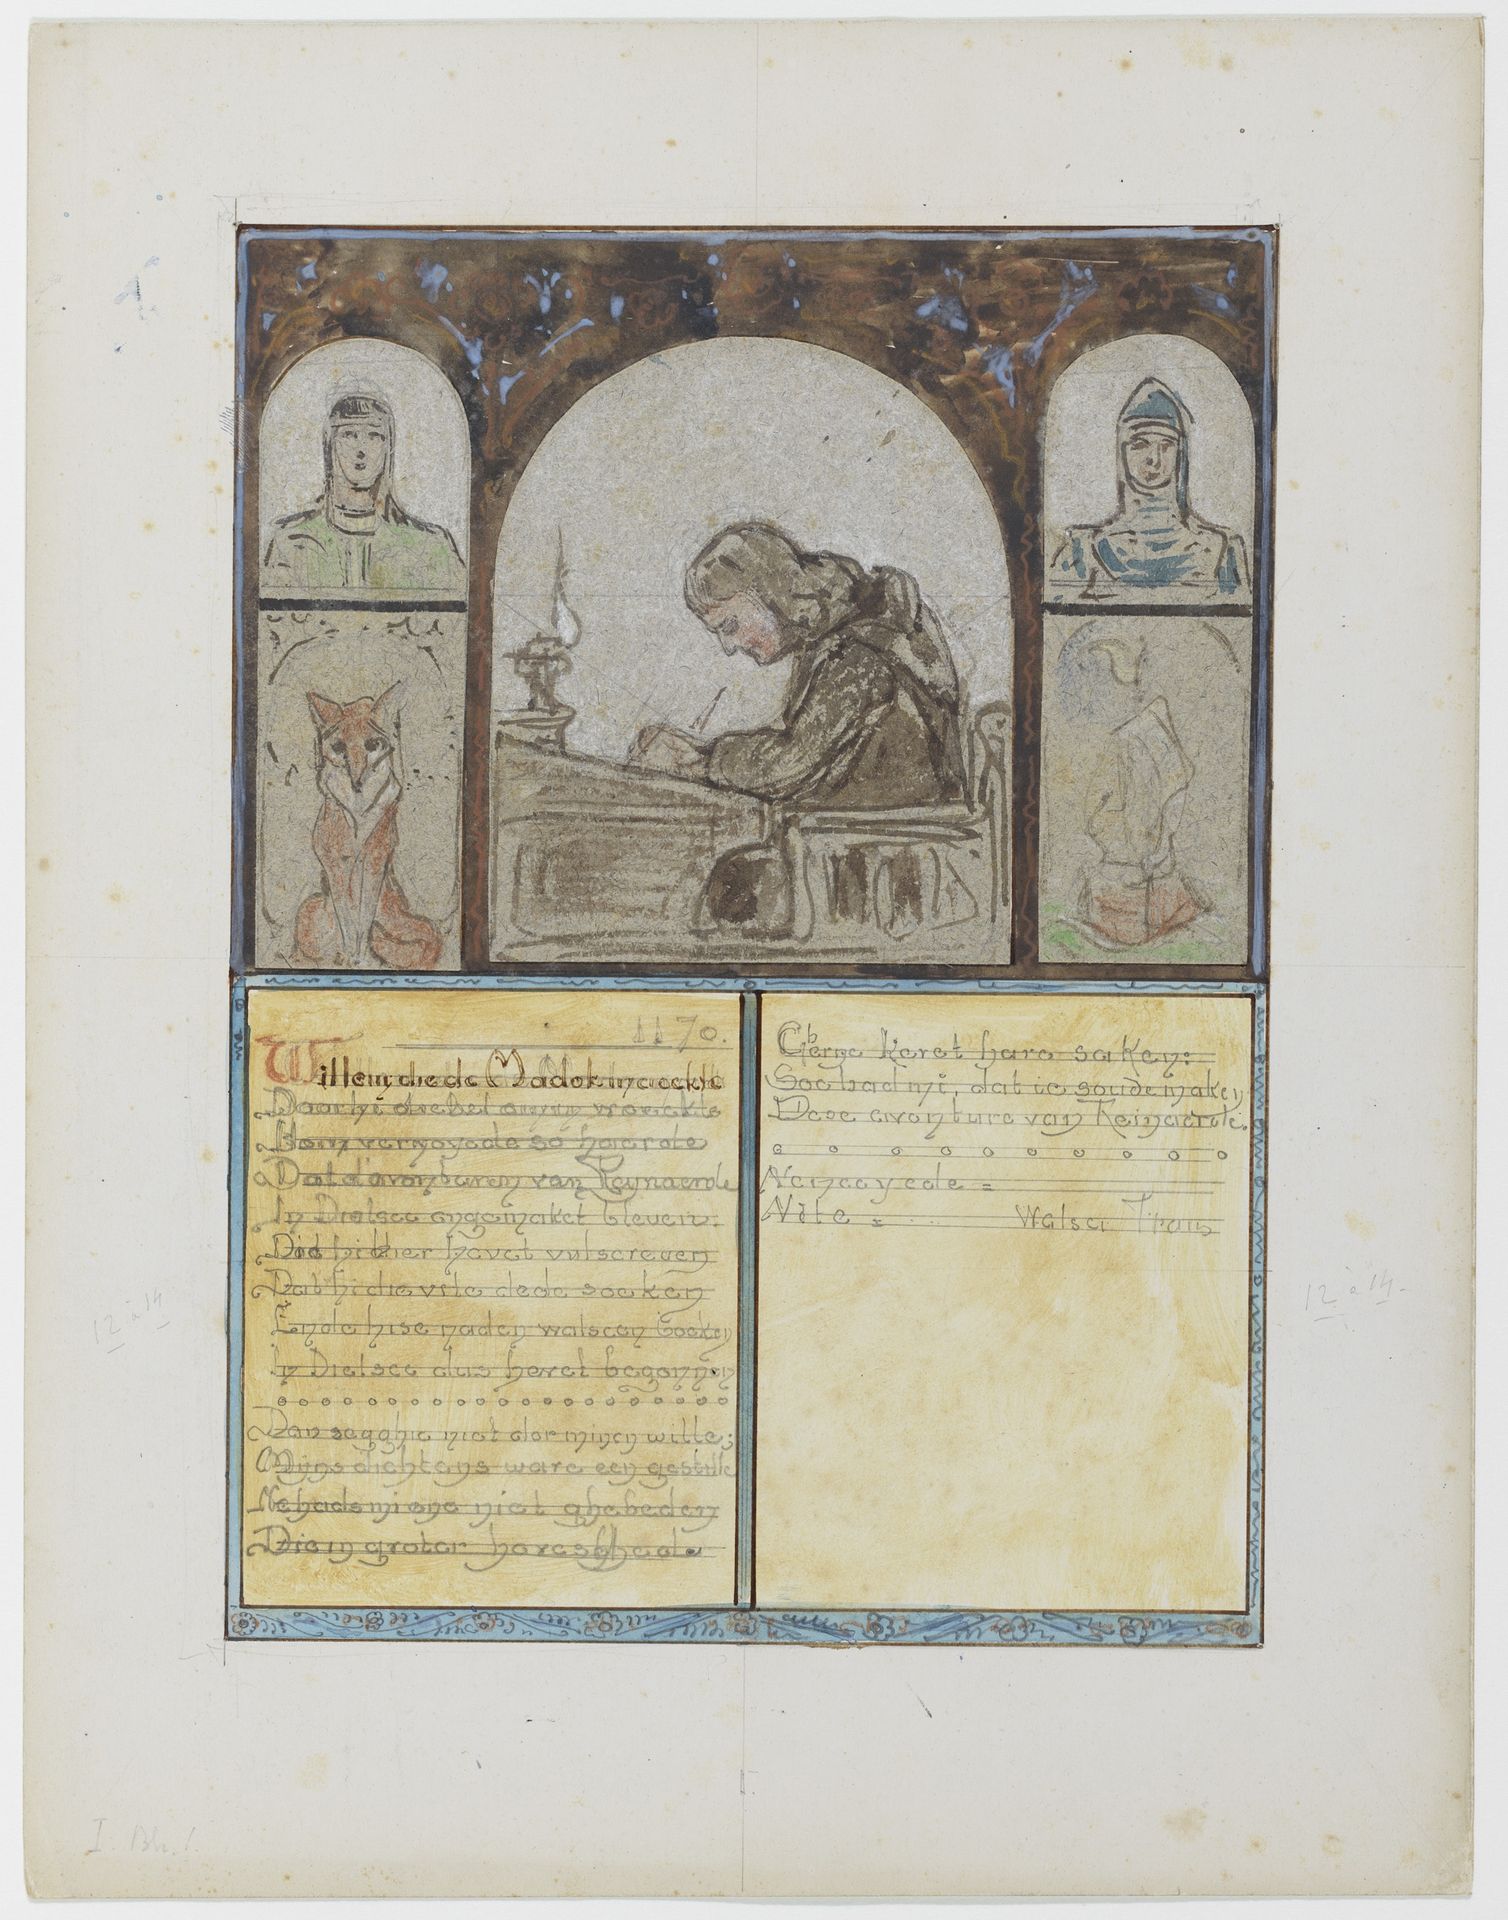 1170.
Willem die de Madok maeckte
Daer hi dicke omme waeckte
Hem vernoyede so haerde
Dat d'avonturen van Reynaerde
In Dietsce ongemaket bleven:
Die hi hier hevet vulscreven
Dat hi die vite dede soeken
Ende hise naden walscen boeken
In Dietsce dus hevet begonnen
Dan segghic niet dor minen wille;
Mijns dichtens ware een gestille
Ne hads mi ene niet ghebeden
Die in groter hoveschede
Gherne keret hare saken:
Soe bad mi, dat ic soude maken
Dese avonture van Reinaerde.
Vernoyede =
Vite = .... Walsc. Frans
12 à 14
12 à 14.
I.